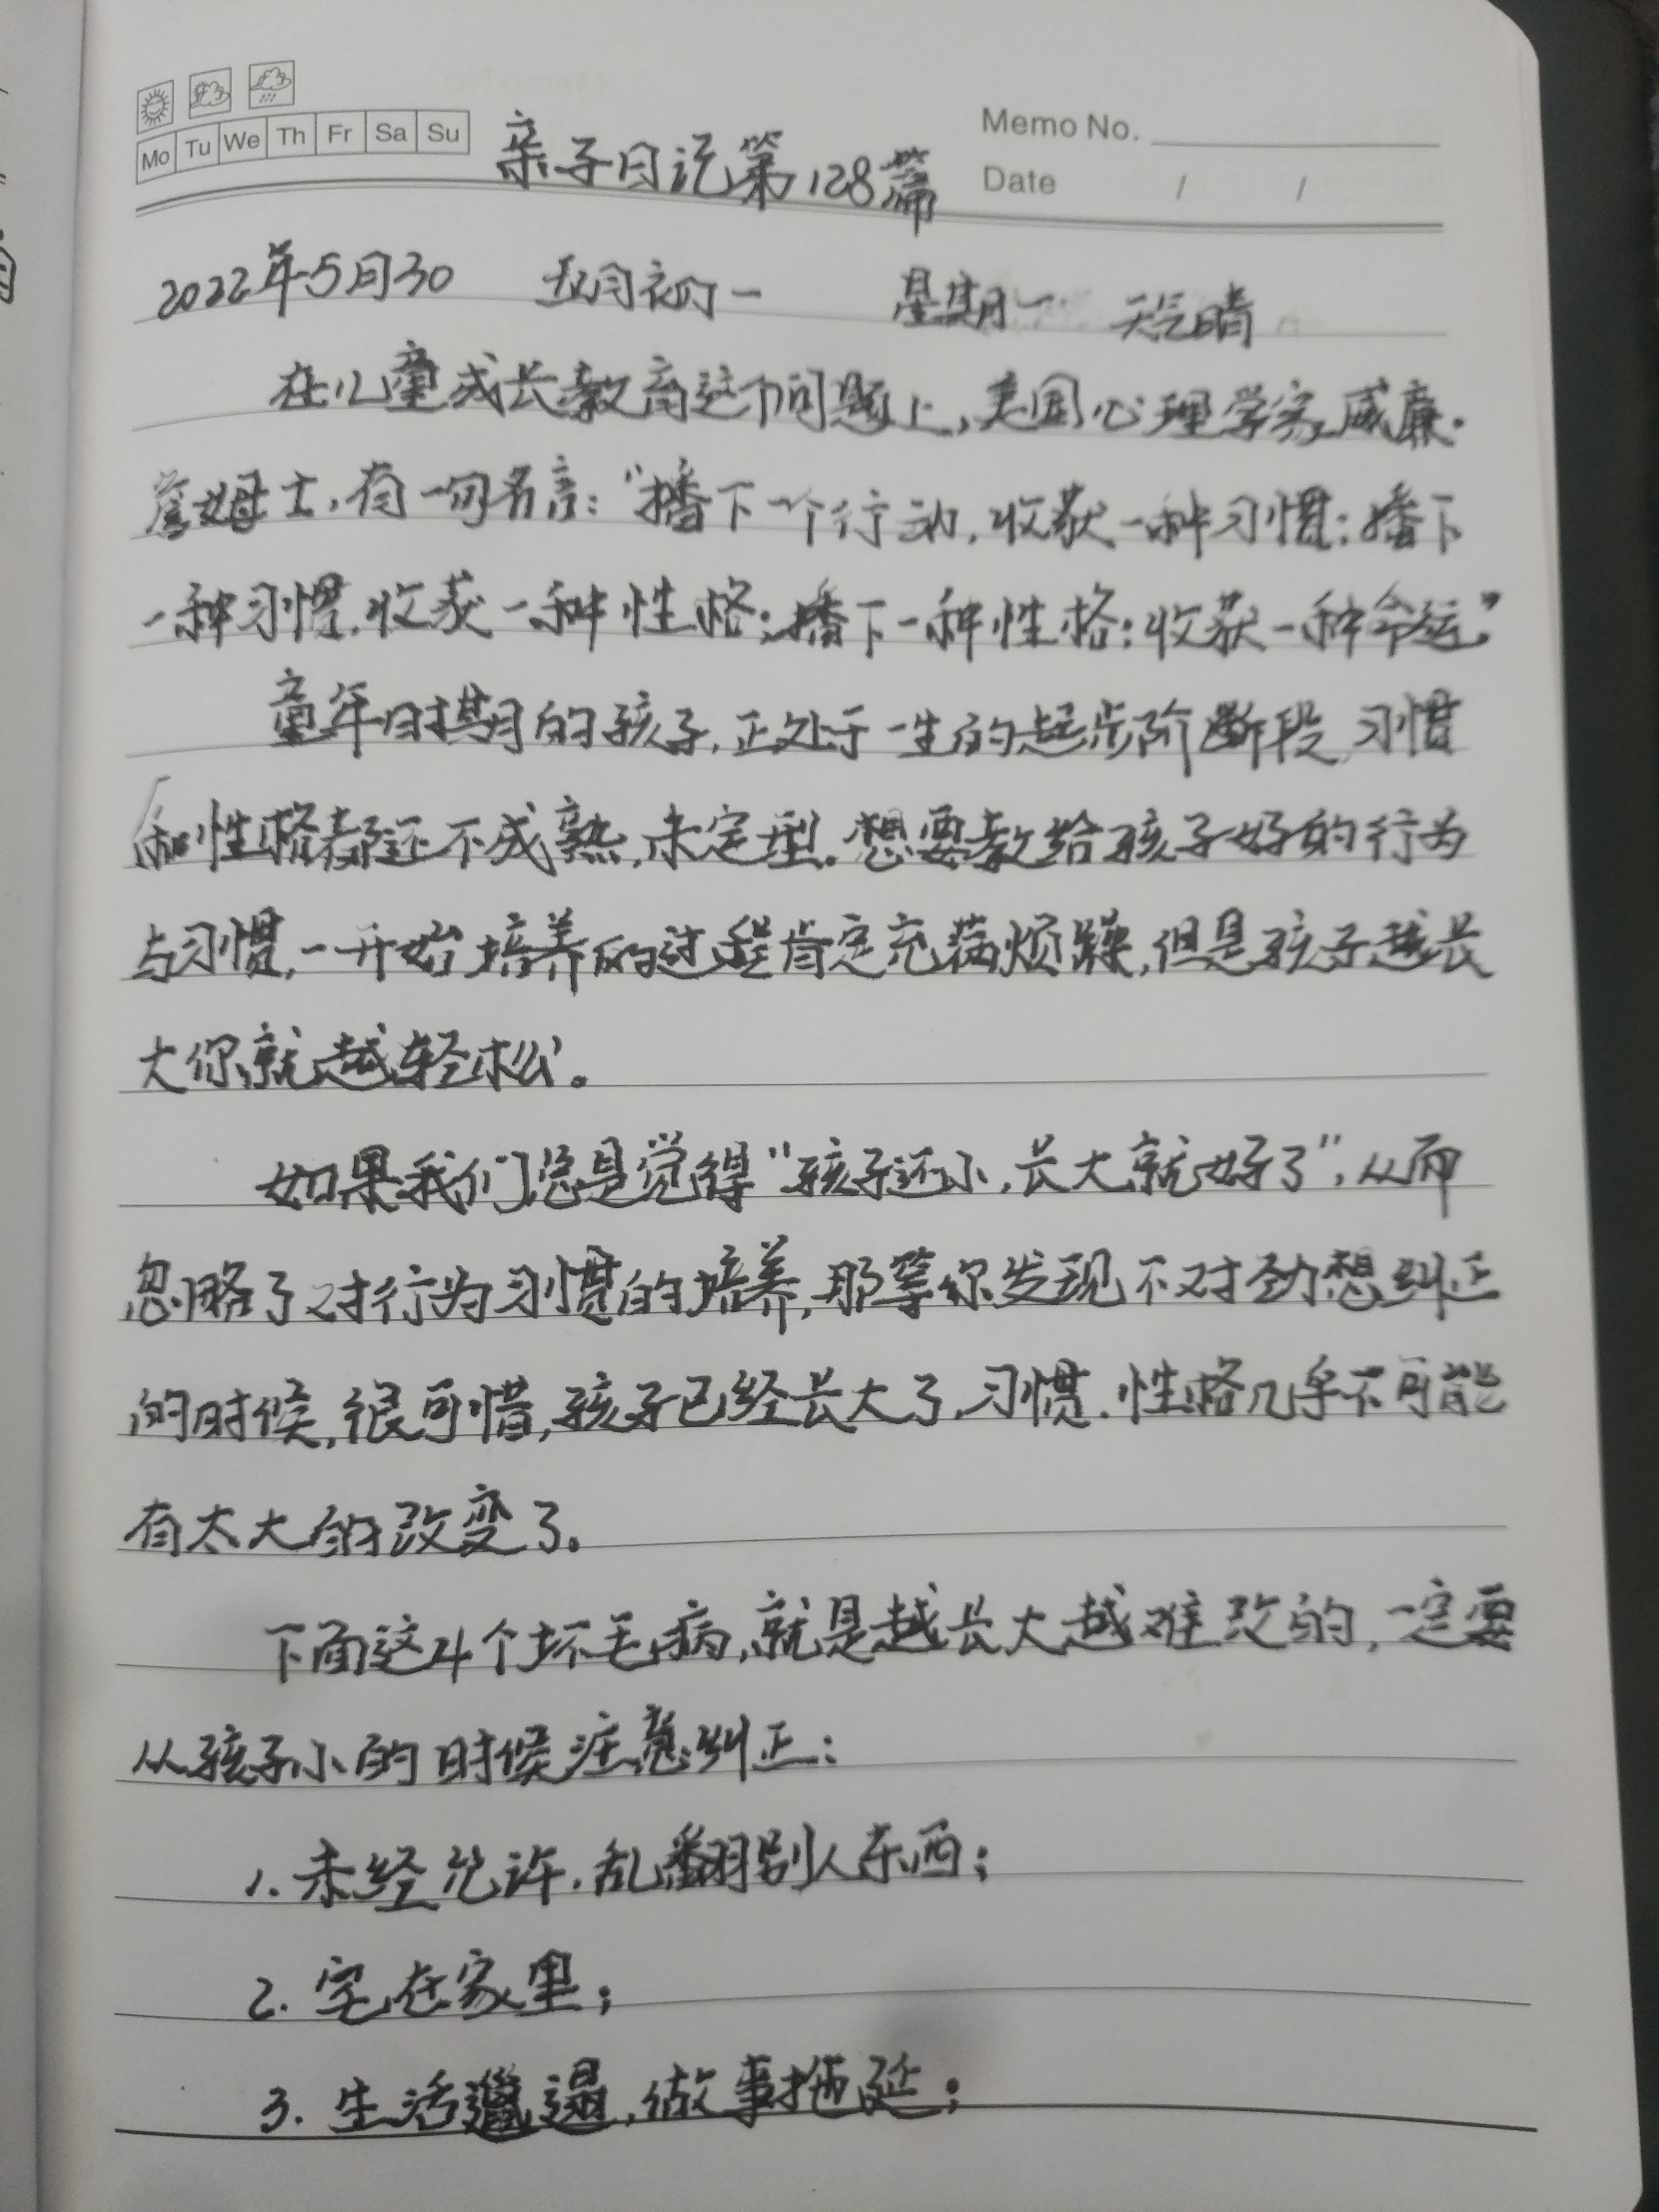 Mo Tu We Th Fr Sa Su
Memo No.
Date / /
亲子日记第128篇
2022年5月30 五月初一 星期一 天气晴
在儿童成长教育这个问题上,美国心理学家威廉·
詹姆士,有一句名言:“播下一个行动,收获一种习惯;播下
一种习惯,收获一种性格;播下一种性格;收获一种命运”
童年时期的孩子,正处于一生的起步阶段,习惯
和性格都还不成熟,未定型。想要教给孩子好的行为
与习惯,一开始培养的过程肯定充满烦躁,但是孩子越长
大你就越轻松。
如果我们总是觉得“孩子还小,长大就好了”,从而
忽略了对行为习惯的培养,那等你发现不对劲想纠正
的时候,很可惜,孩子已经长大了,习惯.性格几乎不可能
有太大的改变了。
下面这4个坏毛病,就是越长大越难改的,一定要
从孩子小的时候注意纠正:
1.未经允许,乱翻别人东西;
2.宅在家里;
3.生活邋遢,做事拖延;